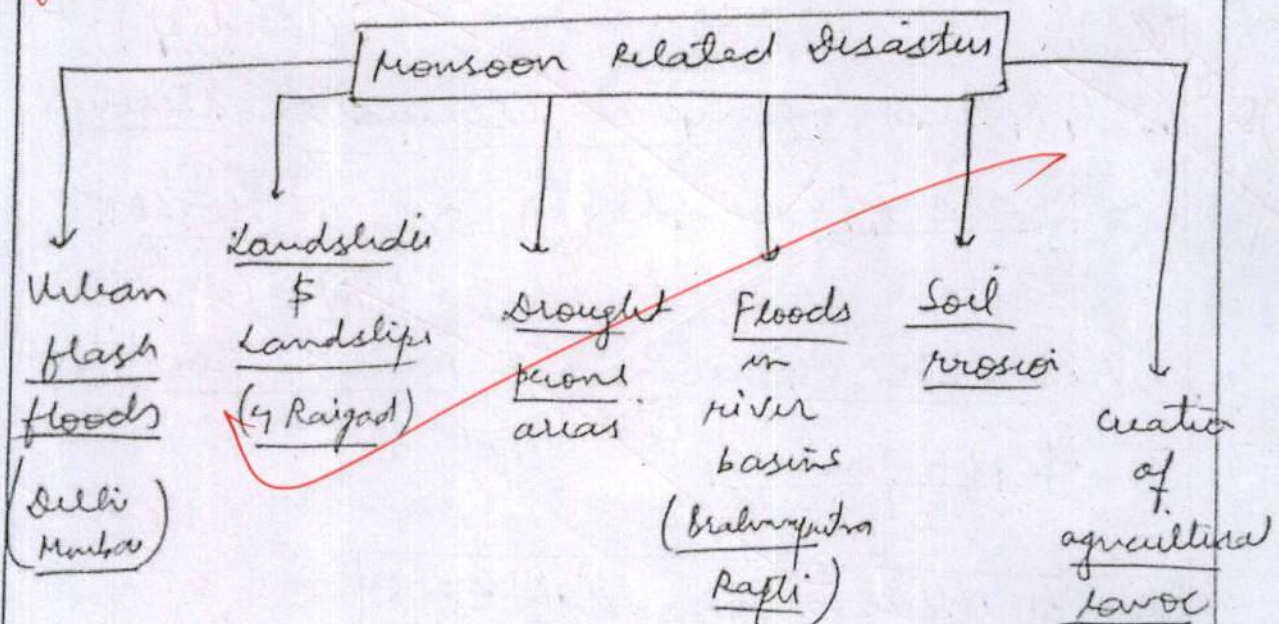 Monsoon Related Disasters
Urban
flash
floods
(Delhi
Mumbai)
Landslides
&
Landslips
(eg Raigad)
Drought
prone
areas
Floods
in
river
basins
(Brahmaputra
Rapti)
Soil
erosion
creation
of
agricultural
havoc